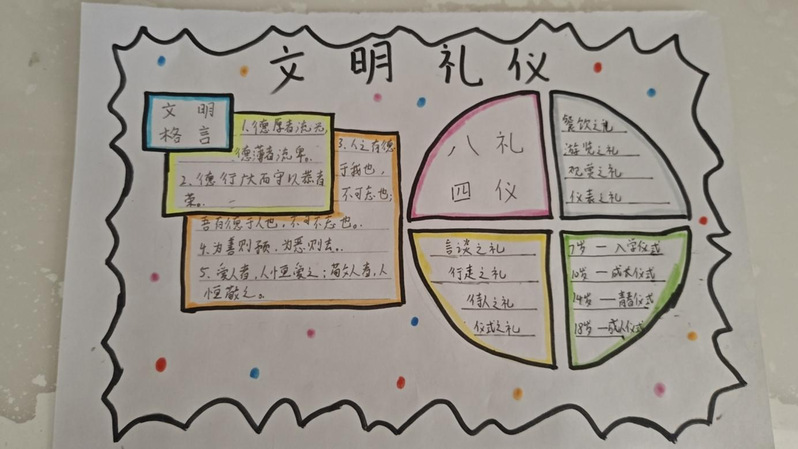 文明礼仪
文明
格言
1.德厚者流光,
德薄者流卑。
2.德行广大而守以恭者
荣。
3.人之有德
于我也,
不可忘也;
吾有德于人也,不可不忘也。
4.为善则预,为恶则去。
5.爱人者,人恒爱之;敬人者,人
恒敬之。
八礼
四仪
餐饮之礼
游览之礼
观赏之礼
仪表之礼
言谈之礼
行走之礼
待人之礼
仪式之礼
7岁—入学仪式
10岁—成长仪式
14岁—青春仪式
18岁—成人仪式